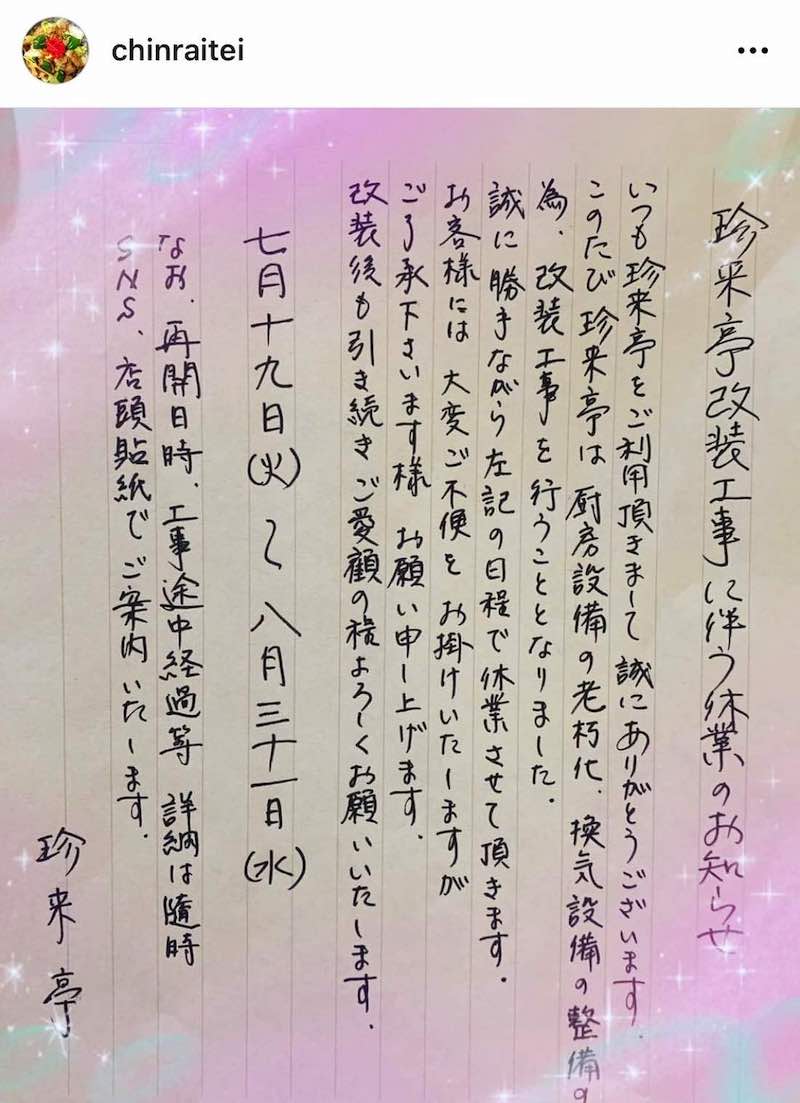 chinraitei
珍来亭改装工事に伴う休業のお知らせ
いつも珍来亭をご利用頂きまして 誠にありがとうございます
このたび 珍来亭は 厨房設備の老朽化、換気設備の整備の
為、改装工事を行うこととなりました。
誠に勝手ながら 左記の日程で休業させて頂きます。
お客様には 大変ご不便を お掛けいたしますが
ご了承下さいます様 お願い申し上げます。
改装後も引き続き ご愛顧の程よろしくお願いいたします。
七月十九日(火)〜八月三十一日(水)
なお、再開日時、工事途中経過等 詳細は随時
SNS、店頭貼紙でご案内いたします。
珍来亭